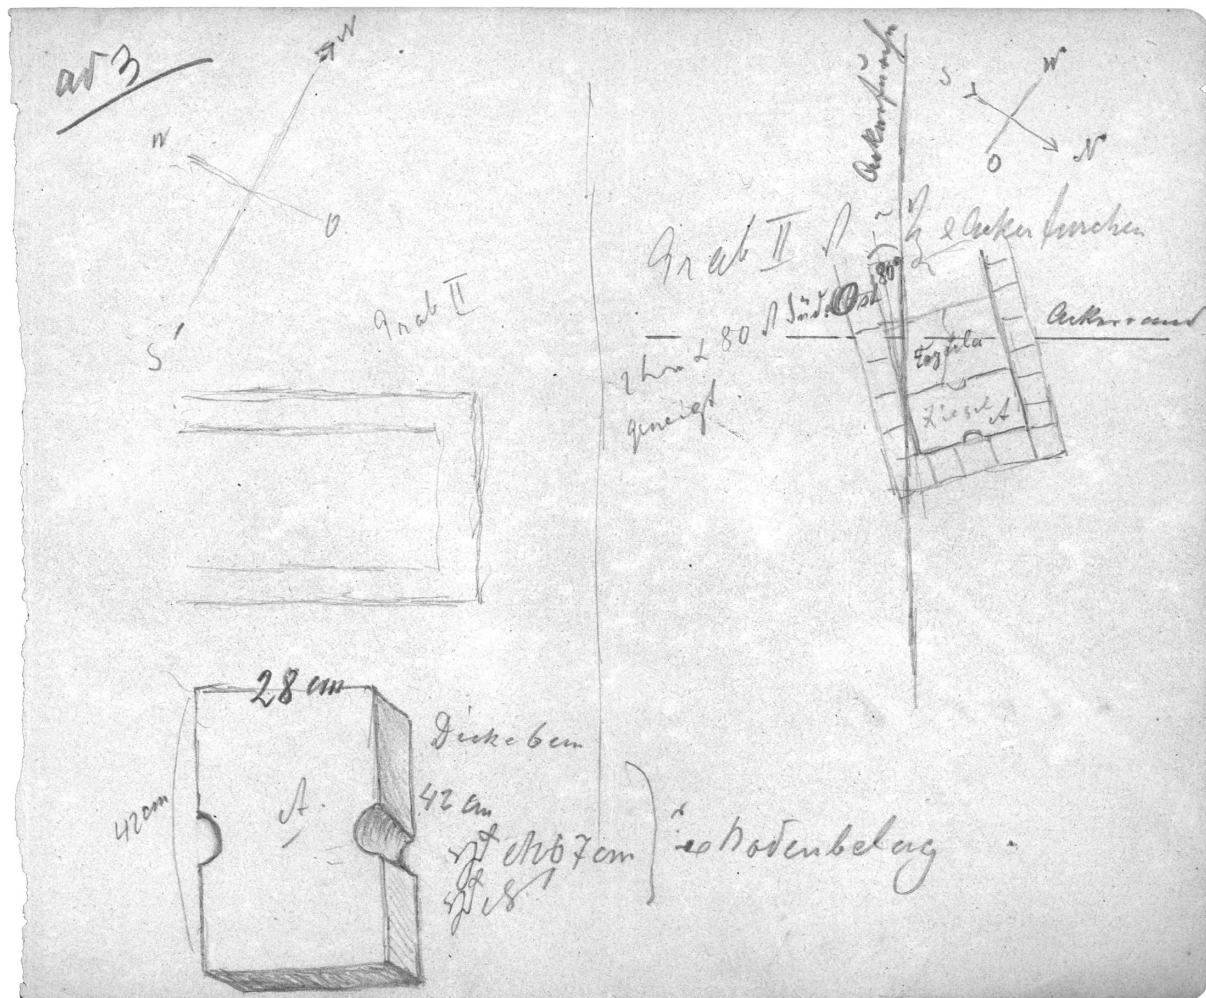 ad 3
N
W
O
S
Grab II
28 cm
42 cm
A.
Dicke 6 cm
42 cm
7 cm
Bodenbelag
Ackerfurche
S
W
O
N
Grab II
Ackerfurchen
80°
80
Süd. Ost
geneigt.
Ackerrand
Tegula
Ziegel A